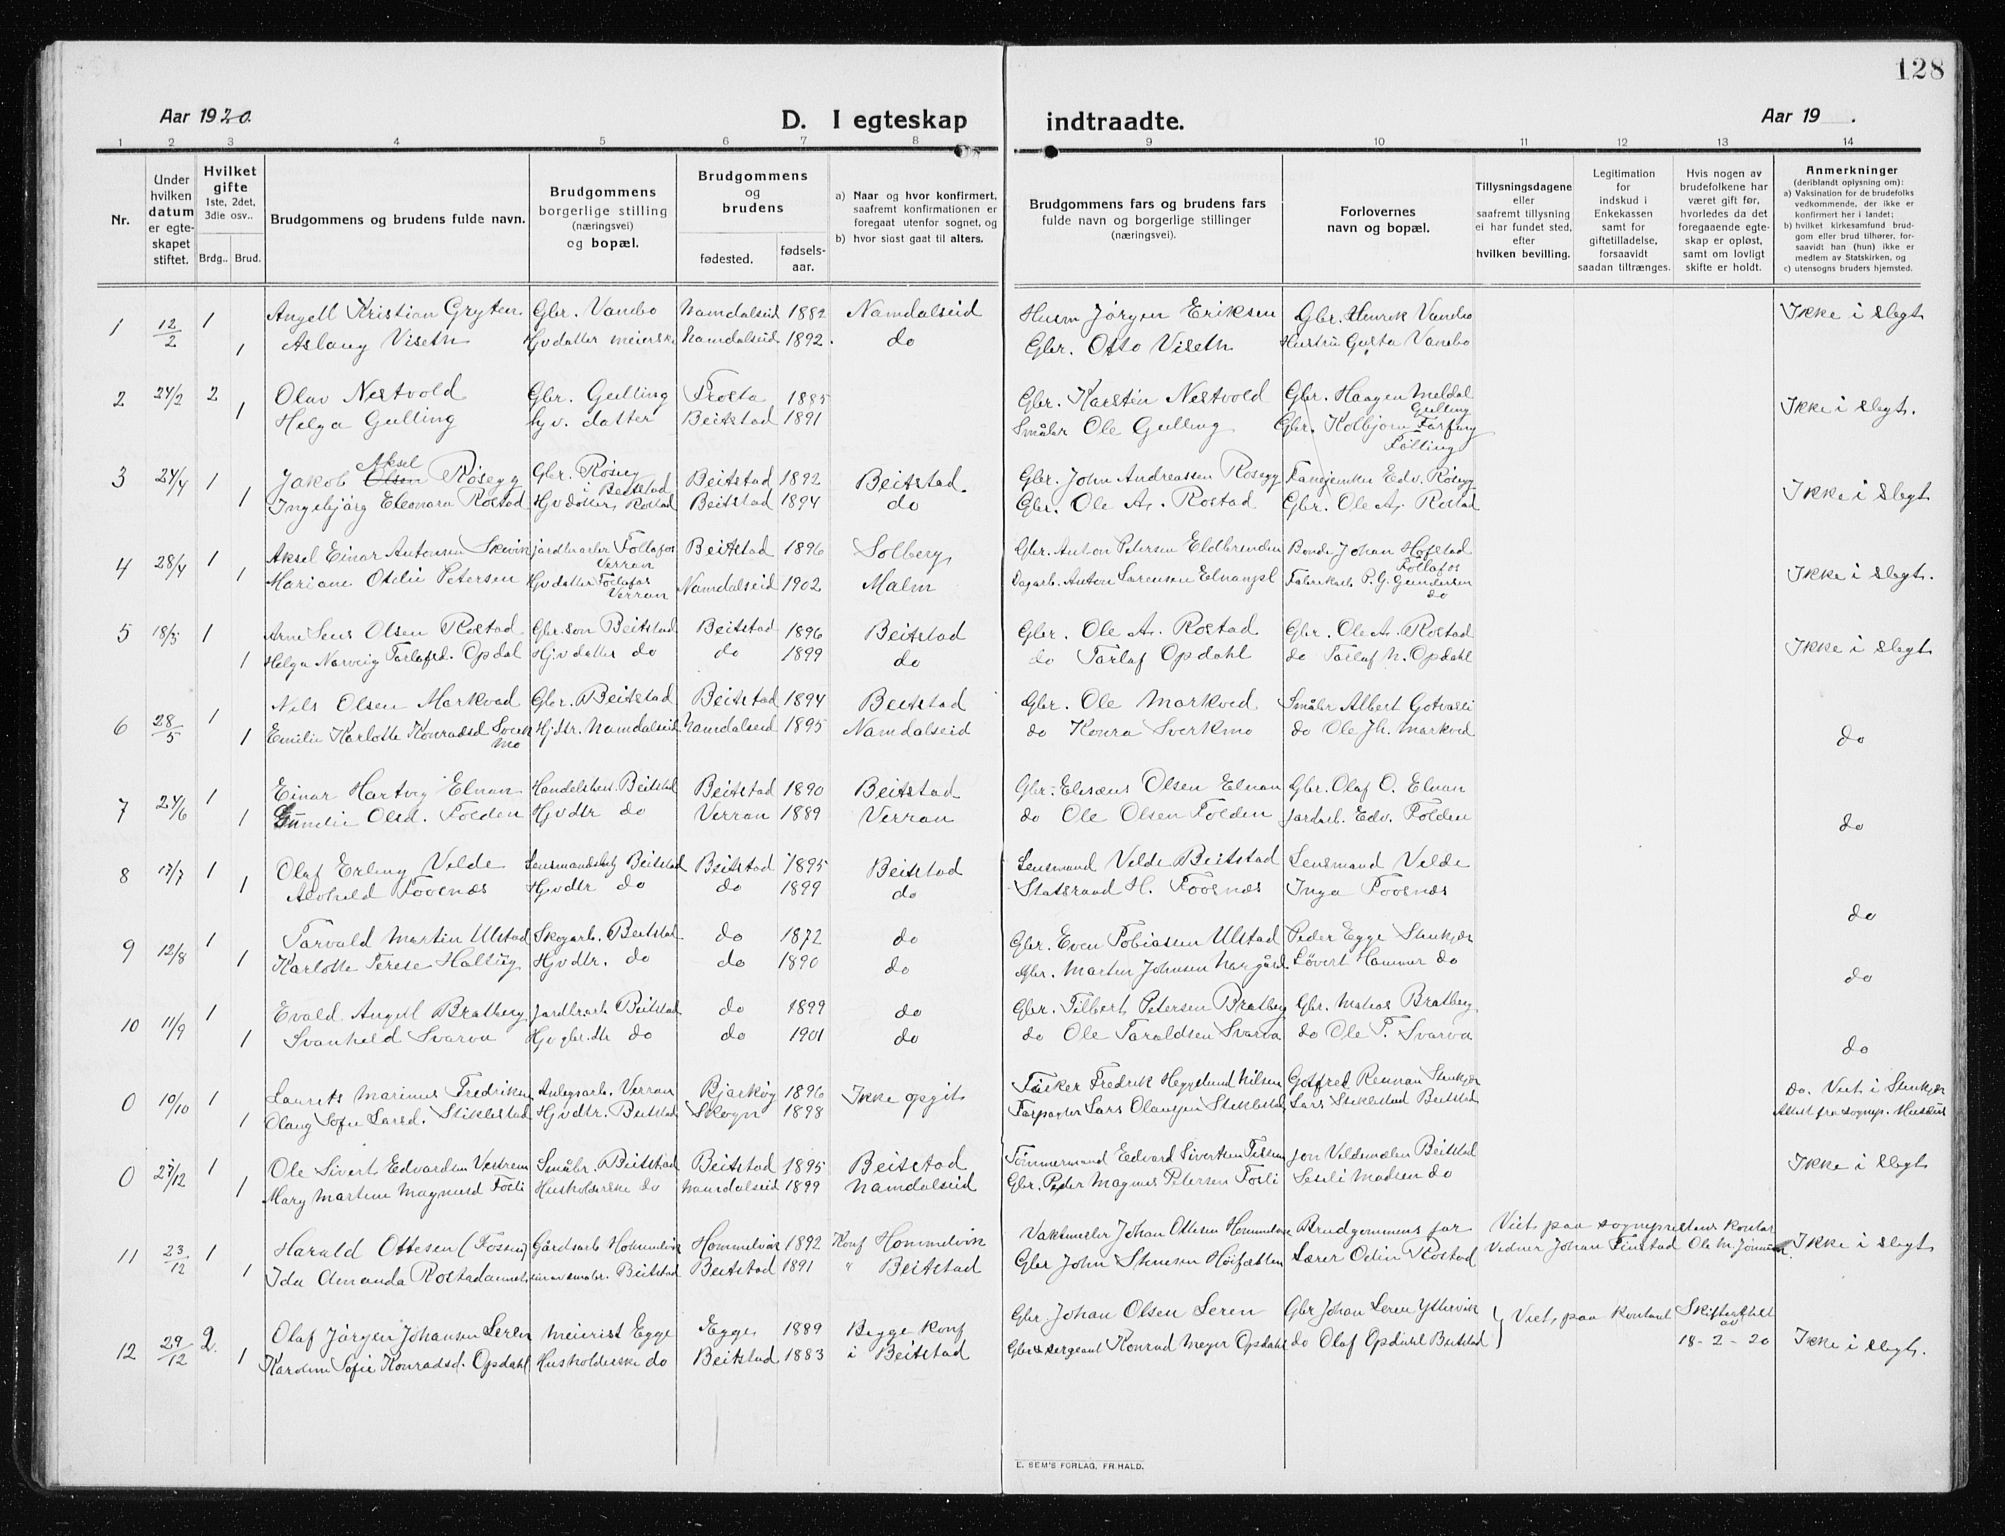 128
Aar 1920.
D. I egteskap indtraadte.
Aar 19 .
1 2 3 4 5 6 7 8 9 10 11 12 13 14
Nr.
Under hvilken datum er egteskapet stiftet.
Hvilket gifte 1ste, 2det, 3die osv..
Brdg.. Brud.
Brudgommens og brudens fulde navn.
Brudgommens borgerlige stilling (næringsvei) og bopæl.
Brudgommens og brudens
fødested.
fødselsaar.
a) Naar og hvor konfirmert, saafremt konfirmationen er foregaat utenfor sognet, og
b) hvor sisst gaat til alters.
Brudgommens fars og brudens fars fulde navn og borgerlige stillinger (næringsvei).
Forlovernes navn og bopæl.
Tillysningsdagene eller saafremt tillysning ei har fundet sted, efter hvilken bevilling.
Legitimation for indskud i Enkekassen samt for giftetilladelse, forsaavidt saadan tiltrænges.
Hvis nogen av brudefolkene har været gift før, hvorledes da det foregaaende egteskap er opløst, samt om lovligt skifte er holdt.
Anmerkninger (deriblandt oplysning om):
a) Vaksination for de brudefolks vedkommende, der ikke er konfirmert her i landet;
b) hvilket kirkesamfund brudgom eller brud tilhører, forsaavidt han (hun) ikke er medlem av Statskirken, og
c) utensogns bruders hjemsted.
1 12/2 1 Angell Kristian Gryten Gbr. Vanebo Namdalseid 1882 Namdalseid Husm Jørgen Eriksen Gbr. Henrik Vanebo Ikke i slegt
1 Aslaug Viseth Hjv datter Namdalseid 1892. do Gbr. Otto Viseth Hustru Gusta Vanebo
2 24/2 2 Olav Nestvold Gbr. Gulling Frosta 1885 Gbr. Karstein Nestvold Gbr. Haagen Meldal Gulling Ikke i slegt.
1 Helga Gulling hjv. datter Beitstad 1891 Småbr Ole Gulling Gbr. Kolbjørn Følling
3 24/4 1 Jakob Aksel Røsegg Gbr. Røseg i Beitstad Beitstad 1892 Beitstad. Gbr. John Andreassen Rosegg Edv. Røsegg Ikke i slegt
1 Ingebjørg Eleonora Rostad Hjv datter Rostad Beitstad 1894 do Gbr. Ole A. Rostad Gbr. Ole A. Rostad
4 28/4 1 Aksel Einar Antonsen Follafos Verran Beitstad 1896 Solberg Gbr. Anton Petersen Bonde Johan Hofstad Follafos Ikke i slegt.
1 Mariane Otelie Petersen Hjv datter Follafos Verran Namdalseid 1902 Malm Dagarb. Anton Sørensen Fabrikarb. P. G. Gundersen do
5 18/5 1 Arne Jens Olsen Rostad Gbr. søn Beitstad Beitstad 1896 Beitstad Gbr. Ole A. Rostad Gbr. Ole A. Rostad Ikke i slegt
1 Helga Narveig Torlafsd. Opdal Hjv datter do do 1899 do do Torlaf Opdahl do Torlaf N. Opdahl
6 28/5 1 Nils Olsen Markved Gbr. Beitstad Beitstad 1894 Beitstad Gbr. Ole Markved Småbr Albert Gotvasli do
1 Emilie Karlotte Konradsd Sverkmo Hjdtr. Namdalseid Namdalseid 1895 Namdalseid do Konra Sverkmo do Ole Jh. Markved
7 24/6 1 Einar Hartvig Elnan Handelsbest. Beitstad Beitstad 1890 Beitstad Gbr. Elisæus Olsen Elnan Gbr. Olaf O. Elnan do
1 Gunelie Olsd. Folden Hjvdtr do Verran 1889 Verran do Ole Olsen Folden Jardarb. Edv. Folden
8 17/7 1 Olaf Erling Velde Beitstad Beitstad 1895 Beitstad Lensmand Velde Beitstad Lensmand Velde do
1 Alvhild Foosnæs Hjvdtr do do 1899 do Statsraad H. Foosnæs Inga Foosnæs
9 12/8 1 Torvald Martin Ulstad Skogarb. Beitstad do 1872 do Gbr. Even Tobiassen Ulstad Peder Egge Stenkjær do
1 Karlotte Terese Haltug Hjvdtr. do do 1890 do Gbr. Martin Johnsen Løvert Hammer do
10 11/9 1 Evald Angell Bratberg Jardbrarb Beitstad do 1899 do Gbr. Tilbert Petersen Bratberg Gbr. Matias Bratberg do
1 Svanhild Svarva Hjv gbr. dtr do do 1901 do do Ole Taraldsen Svarva do Ole P. Svarva
0 10/10 1 Laurits Marinus Fredriksen Anlegsarb. Verran Bjarkøy 1896 Ikke opgit Fisker Fredrik Heggelund Nilsen Gotfred Rennan Stenkjær Do. Viet i Stenkjær
1 Olaug Sofie Larsd. Stiklestad Hjvdtr. Beitstad Skogn 1898 Forpagter Lars Olaugsen Stiklestad Lars Stiklestad Beitstad Attest fra sognep.
0 27/12 1 Ole Sivert Edvardsen Småbr. Beitstad Beitstad 1895 Beitstad Tømmermand Edvard Sivertsen Jon Veldemelen Beitstad Ikke i slegt
1 Mary Martine Magnusd Fosli Husholderske do Namdalseid 1899 Namdalseid Gbr. Peder Magnus Petersen Fosli Madsen do
11 23/12 1 Harald Ottesen (Fossen) Gårdsarb Hommelvik Hommelvik 1892 Konf Hommelvik Vaktmester Johan Ottesen Hommelvik Brudgommens far Viet paa sogneprestens kontor Ikke i slegt
1 Ida Amanda Rostad Beitstad Beitstad 1891 " Beitstad Gbr John Stenesen Lærer Odin Rostad Vedner Johan Finstad Ole M.
12 29/12 2. Olaf Jørgen Johansen Leren Meierist Egge Egge 1889 Begge konf Gbr Johan Olsen Leren Gbr Johan Leren Yttervik } Viet paa kontoret Skifteattest av 18-2-20 Ikke i slegt.
1 Karoline Sofie Konradsd. Opdahl Husholderske do Beitstad 1883 i Beitstad Gbr & sergeant Konrad Meyer Opdahl do Olaf Opdahl Beitstad
E. SEM'S FORLAG, FR.HALD.